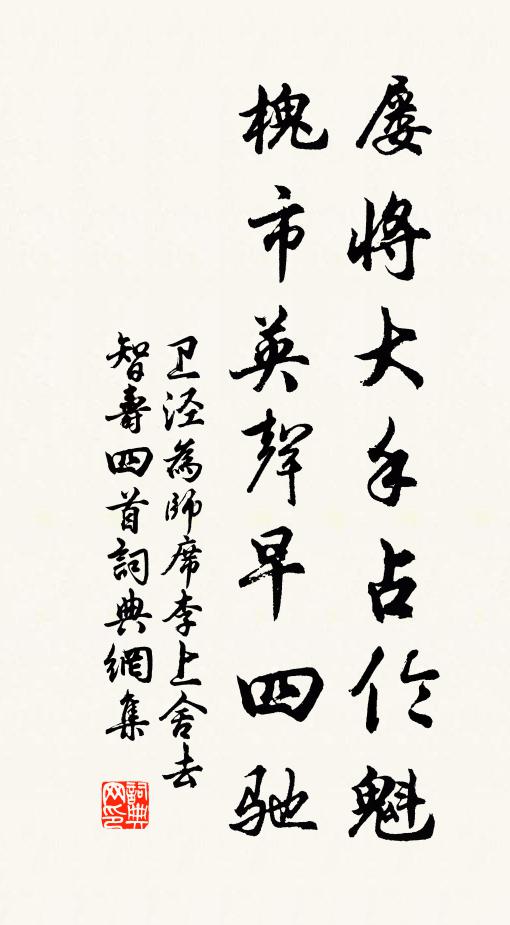 屢將大手占伦魁
槐市英聲早四驰
卫泾為師席李上舍去
智壽四首詞典網集
詞典
网印